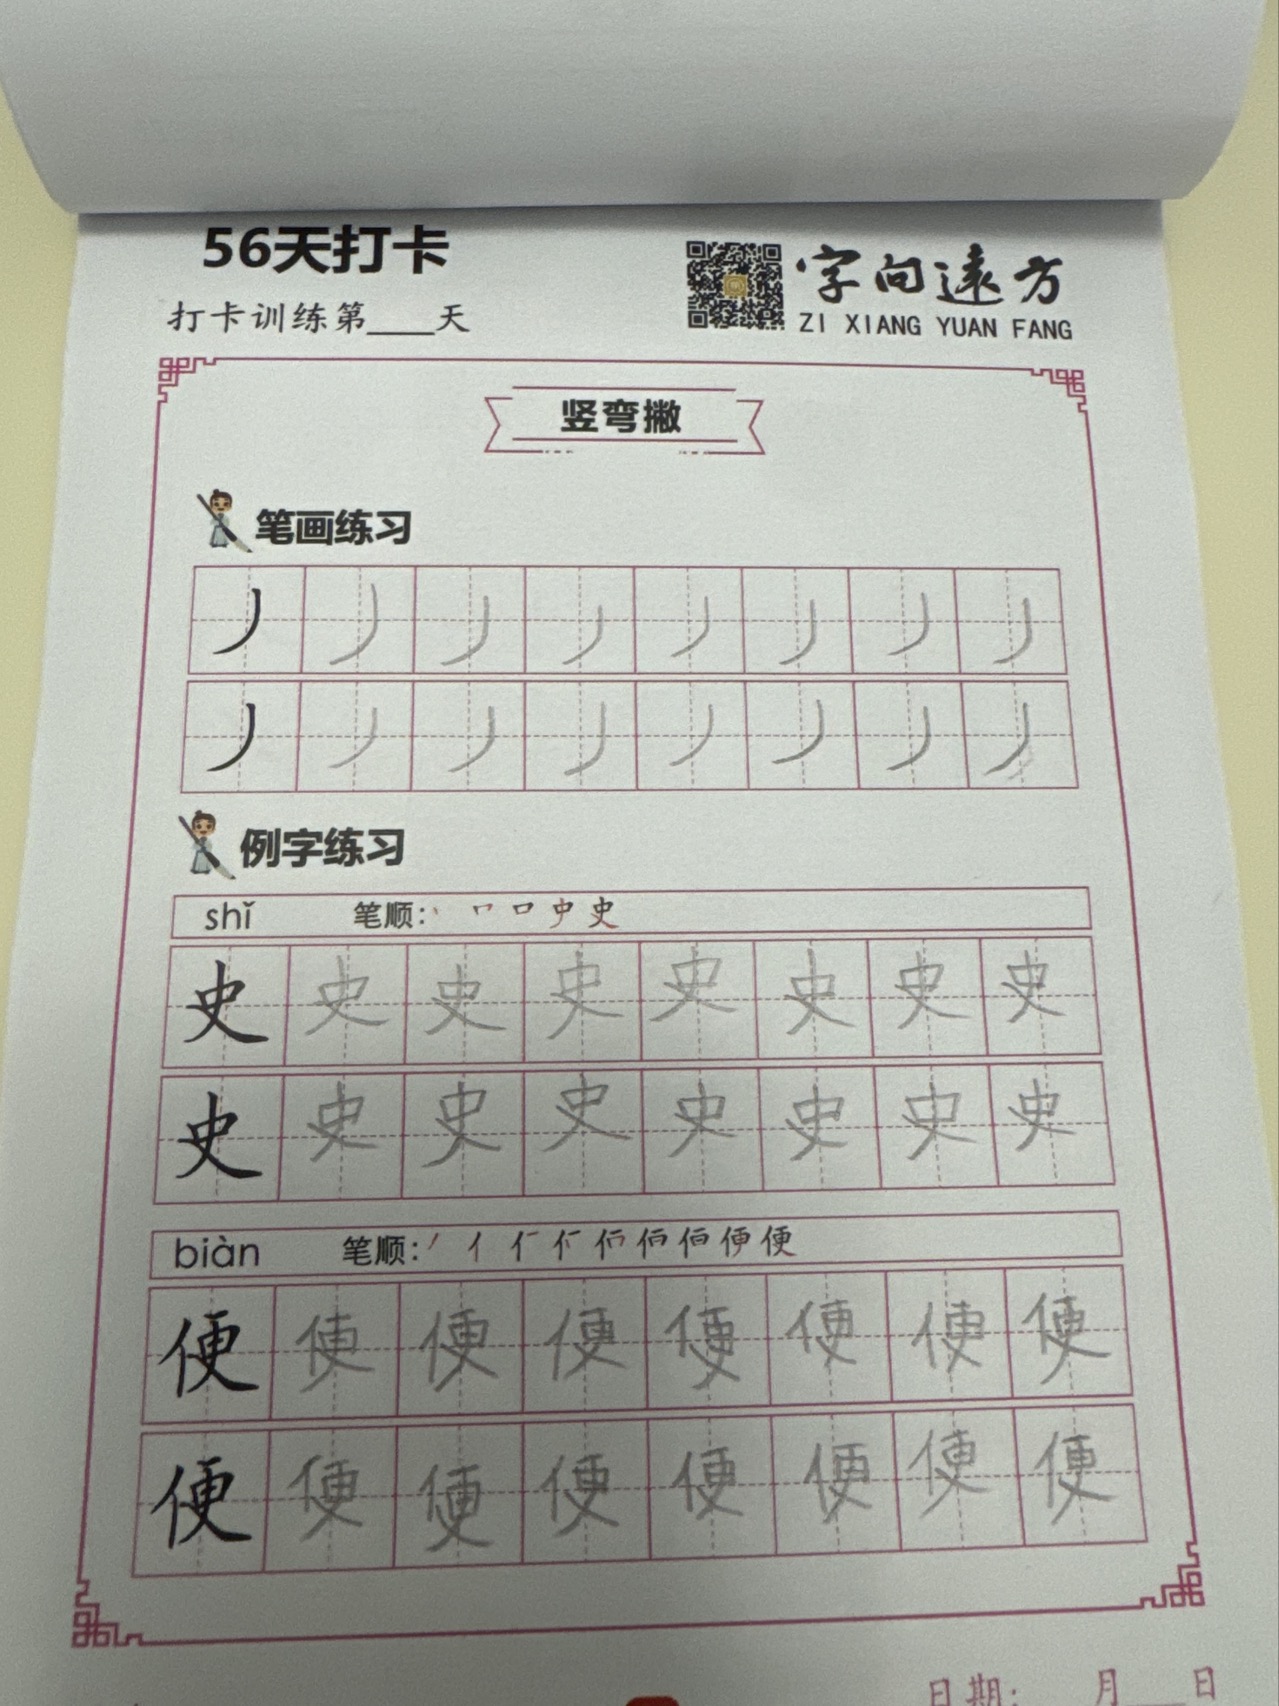 56天打卡
打卡训练第____天
字向遠方
ZI XIANG YUAN FANG
竖弯撇
笔画练习
丿 丿 丿 丿 丿 丿 丿 丿
丿 丿 丿 丿 丿 丿 丿 丿
例字练习
shǐ 笔顺: 丨 冖 口 史 史
史 史 史 史 史 史 史 史
史 史 史 史 史 史 史 史
biàn 笔顺: 丿 亻 便 便
便 便 便 便 便 便 便 便
便 便 便 便 便 便 便 便
日期: 月 日